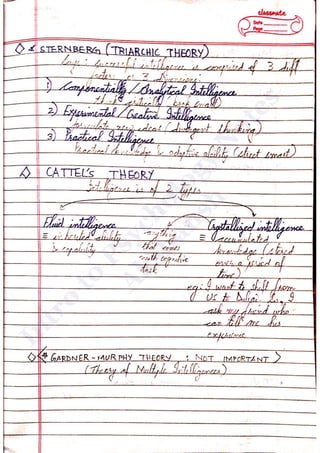 classmate
Date
Page
STERNBERG (TRIARCHIC THEORY)
Says: successful intelligence is comprised of 3 diff
factors or 3 dimensions:
1) Componentially / Analytical Intelligence
(book smart)
2) Experimental / Creative Intelligence
new ideas (divergent thinking)
3) Practical Intelligence
Practical knowledge & adaptive ability (street smart)
CATTEL'S THEORY
Intelligence is of 2 types
Fluid intelligence
Crystallized intelligence
= inherited ability
& capability
anything
that comes
with cognitive
task
= accumulated
knowledge (stored
over a period of
time)
eg: I want to shift from
US to Dubai. So, I
ask my friend who
can tell me his
experience
(* GARDNER-MURPHY THEORY : NOT IMPORTANT)
(Theory of Multiple Intelligences)